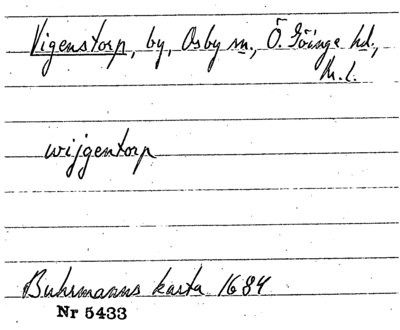 Vigenstorp, by, Osby sn., Ö. Göinge hd.,
Kr. l.
wijgentorp
Buhrmanns karta 1684
Nr 5433